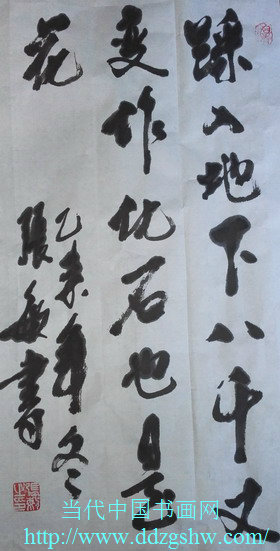 踩入地下八千丈
变作化石也是
花
乙未年冬
张敏书
当代中国书画网
http://www.ddzgshw.com/